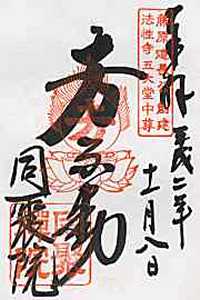 奉拝
二年
十一月八日
藤原道長公創建
法性寺五大堂中尊
不動
同聚院
同聚院